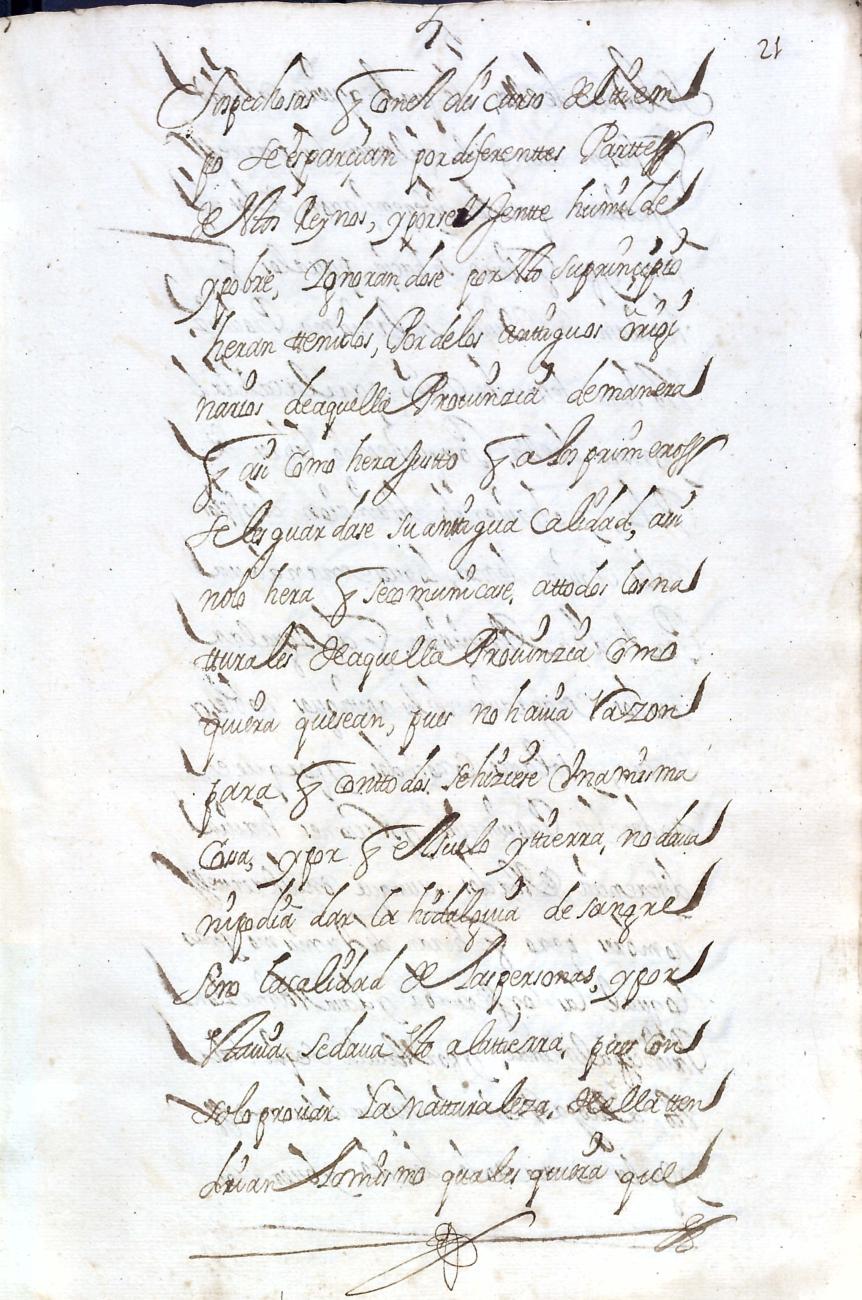 21
Sospechosas q con el discurso del tiem
po se esparcian por diferenttes Parttes
de Nros Reynos, y por ser Jentte humilde
y pobre, Ygnorandose por Nto su principio
heran ttenidos, Por de los anttiguos origi
narios de aquella Provinzia de manera
q asi como hera Justto q a los primeros
se les guardase su anttigua Calidad, asi
no lo hera q se comunicase, a ttodos los na
tturales de aquella Provinzia como
quiera que sean, pues no havia Razzon
para q con ttodos, se hiziese Una misma
Cosa, y por q el suelo y ttierra, no dava
ni podia dar la hidalguia de sangre
sino la calidad de las personas, y por
se dava a la ttierra, pues con
solo provar la natturaleza, de ella tten
drian lo mismo quales quiera que